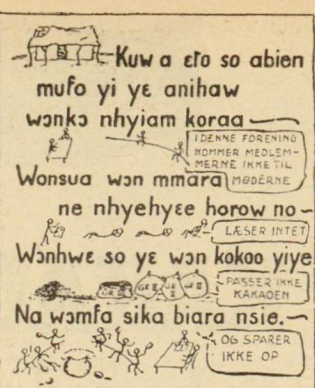 Kuw a ɛto so abien
mufo yi yɛ anihaw
wɔnkɔ nhyiam koraa
I DENNE FORENING
KOMMER MEDLEM-
MERNE IKKE TIL
MØDERNE
Wonsua wɔn mmara
ne nhyehyɛe horow no
LÆSER INTET
Wɔnhwɛ so yɛ wɔn kokoo yiye
GR II
GR II
GR II
PASSER IKKE
KAKAOEN
Na wɔmfa sika biara nsie.
OG SPARER
IKKE OP